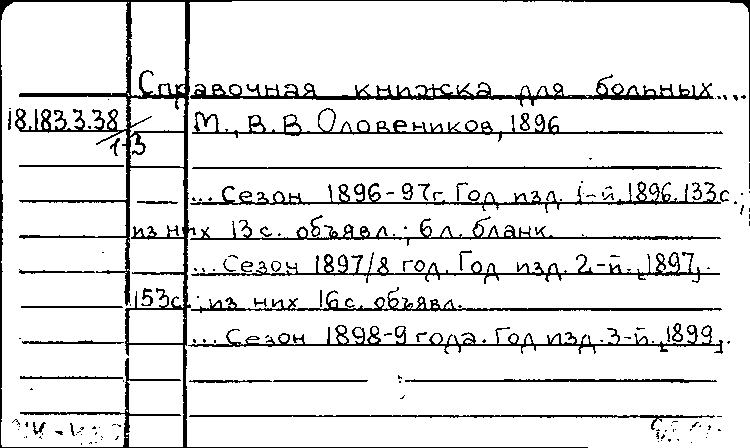 Справочная книжска для больных...
18.183.3.38
1-3
М., В.В. Оловеников, 1896
... Сезон 1896-97г. Год изд. 1-й. 1896. 133с.;
из них 13с. объявл.; 6 л. бланк.
... Сезон 1897/8 год. Год изд. 2-й. [1897].
153с.; из них 16с. объявл.
... Сезон 1898-9 года. Год изд. 3-й. [1899].